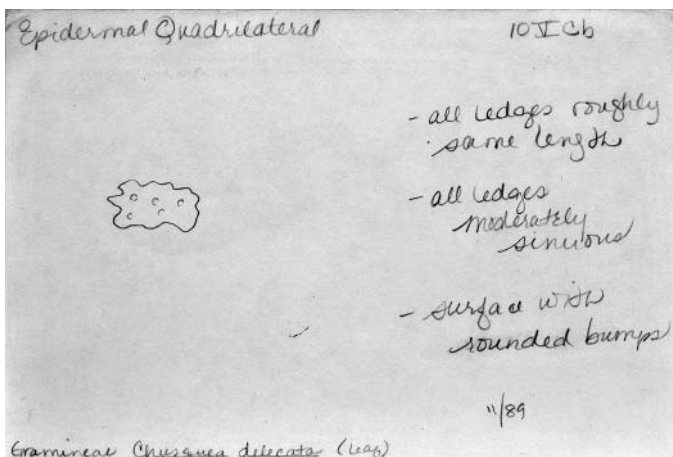 Epidermal Quadrilateral 10 V Cb
- all edges roughly
same length
- all edges
moderately
sinuous
- surface with
rounded bumps
11/89
Gramineae Chusquea delicata (leaf)